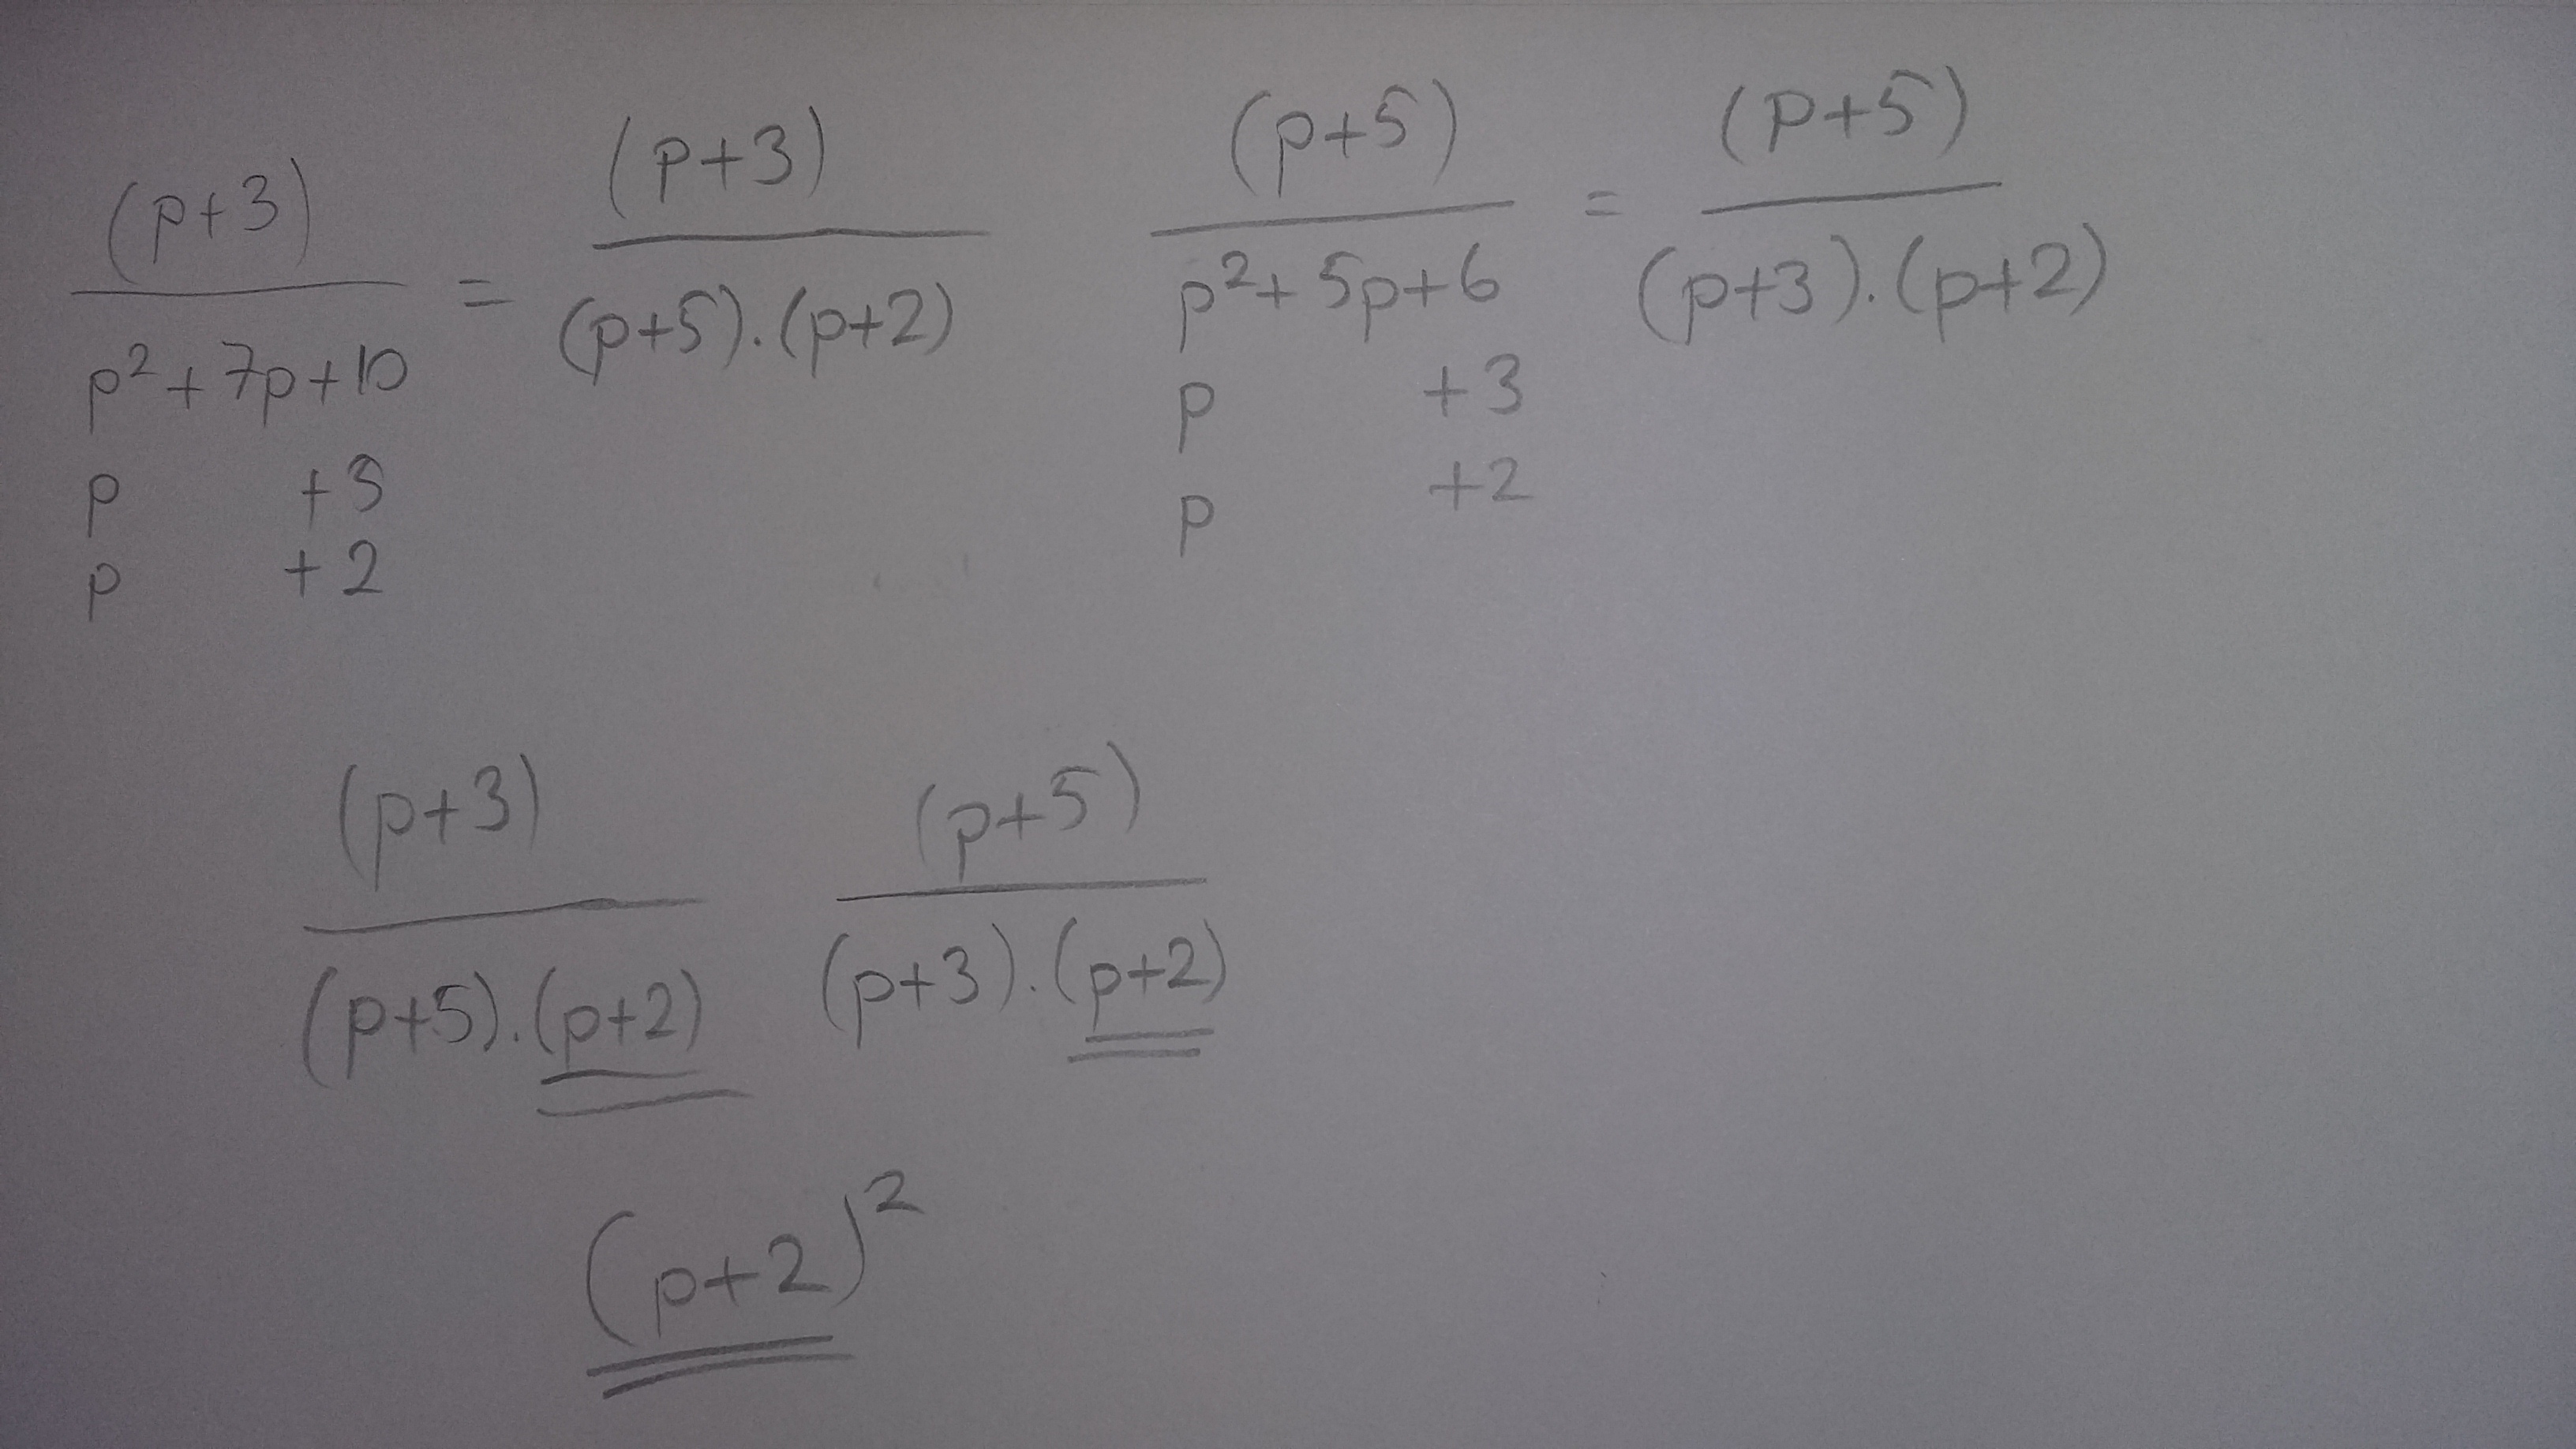 (p+3)/(p²+7p+10) = (p+3)/((p+5).(p+2))
p +5
p +2
(p+5)/(p²+5p+6) = (p+5)/((p+3).(p+2))
p +3
p +2
(p+3)/((p+5).(p+2)) (p+5)/((p+3).(p+2))
(p+2)²